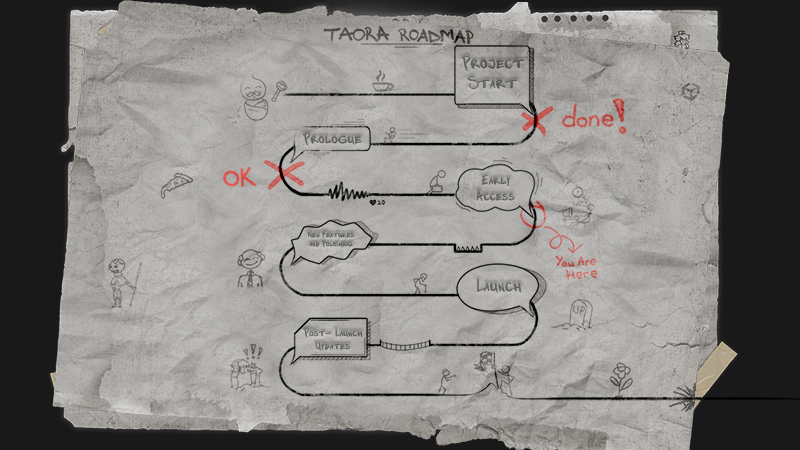 TAORA ROADMAP
PROJECT
START
done!
PROLOGUE
OK
EARLY
ACCESS
NEW FEATURES
AND POLISHING
You Are
Here
LAUNCH
R.I.P.
POST-LAUNCH
UPDATES
!!!